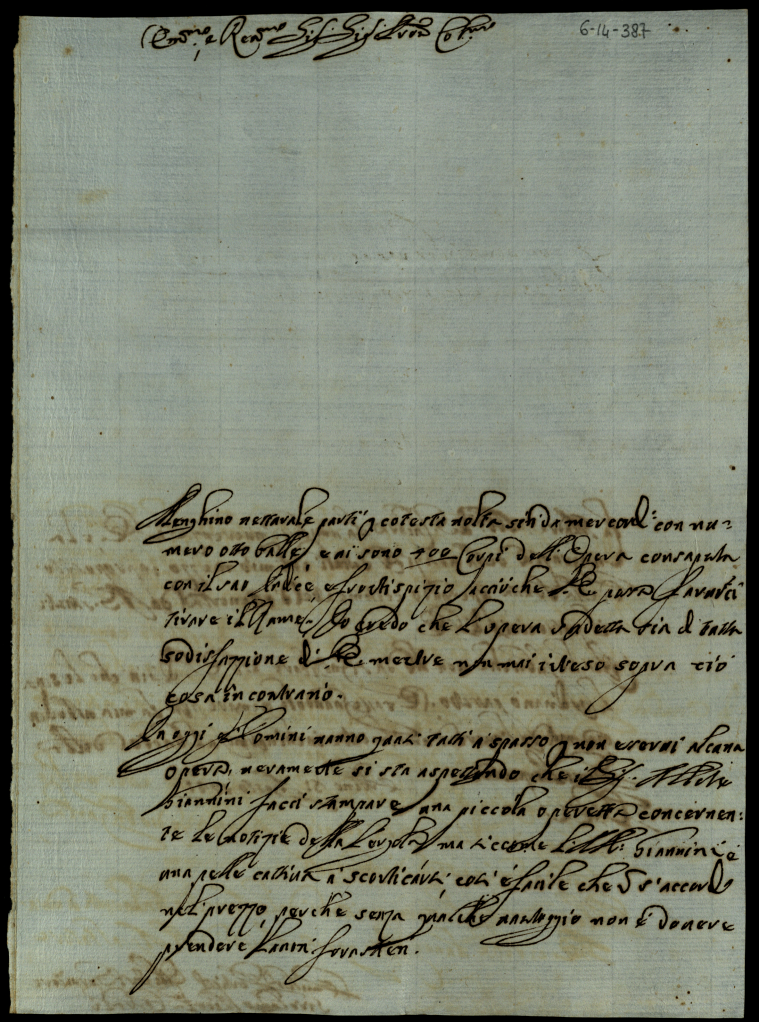 Em.mo, e Rev.mo Sig. Sig. Pron Col.mo
6-14-387
Menghino vetturale partì p cotesta volta sin da mercord: con nu=
mero otto balle, e vi sono 400 Corpi dell'Opera consaputa
con il suo Indice e frontispizio, acciò che possa farvici
tirare il Rame. Io credo che l'opera sudetta sia di tutta
sodisfazzione di mentre non mai inteso sopra ciò
cosa in contrario.
Da oggi gl'Uomini vanno quasi tutti a spasso p non esservi alcuna
opera, veramente si sta aspettando che il Sig.
Giannini facci stampare una piccola operetta concernen=
te le notizie della ma siccome Giannini è
una pelle cattiva a scorticarsi, così è facile che s'accordi
nel prezzo, perchè senza qualche vantaggio non è dovere
prendere lavori forastieri.